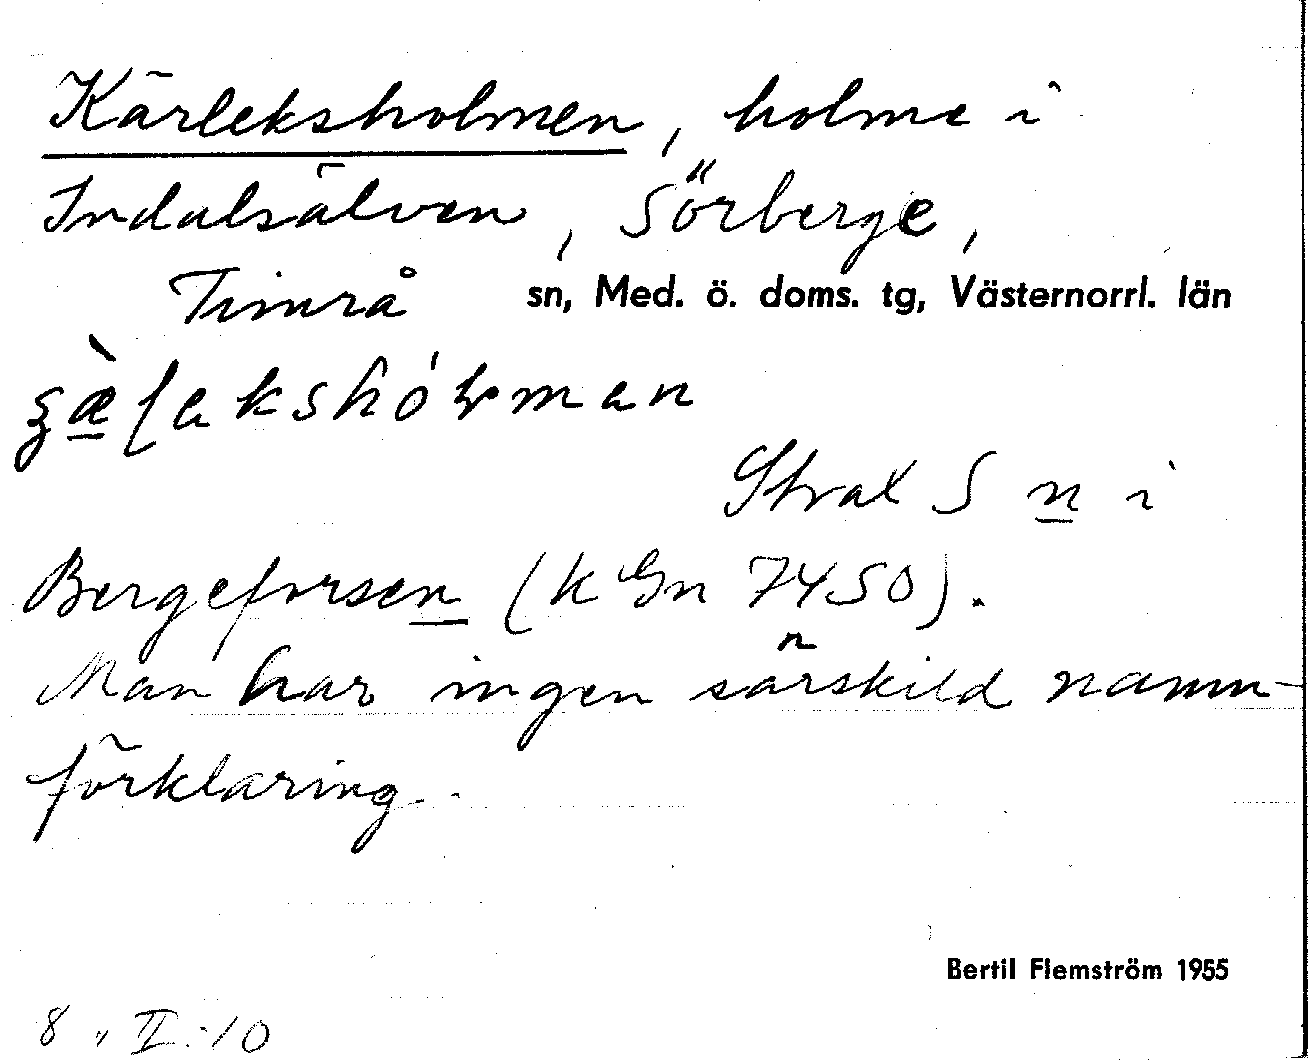 Kärleksholmen, holme i
Indalsälven, Sörberge,
Timrå sn, Med. ö. doms. tg, Västernorrl. län
Strax S n i
Bergeforsen (k Gn 7450).
Man har ingen särskild namn-
förklaring.
Bertil Flemström 1955
8 " II:10